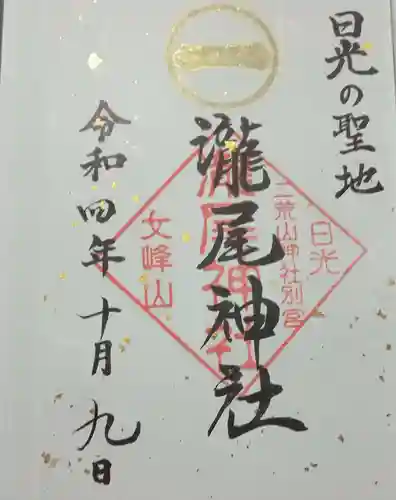 日光の聖地
瀧尾神社
令和四年十月九日
日光
二荒山神社別宮
瀧尾神社
女峰山